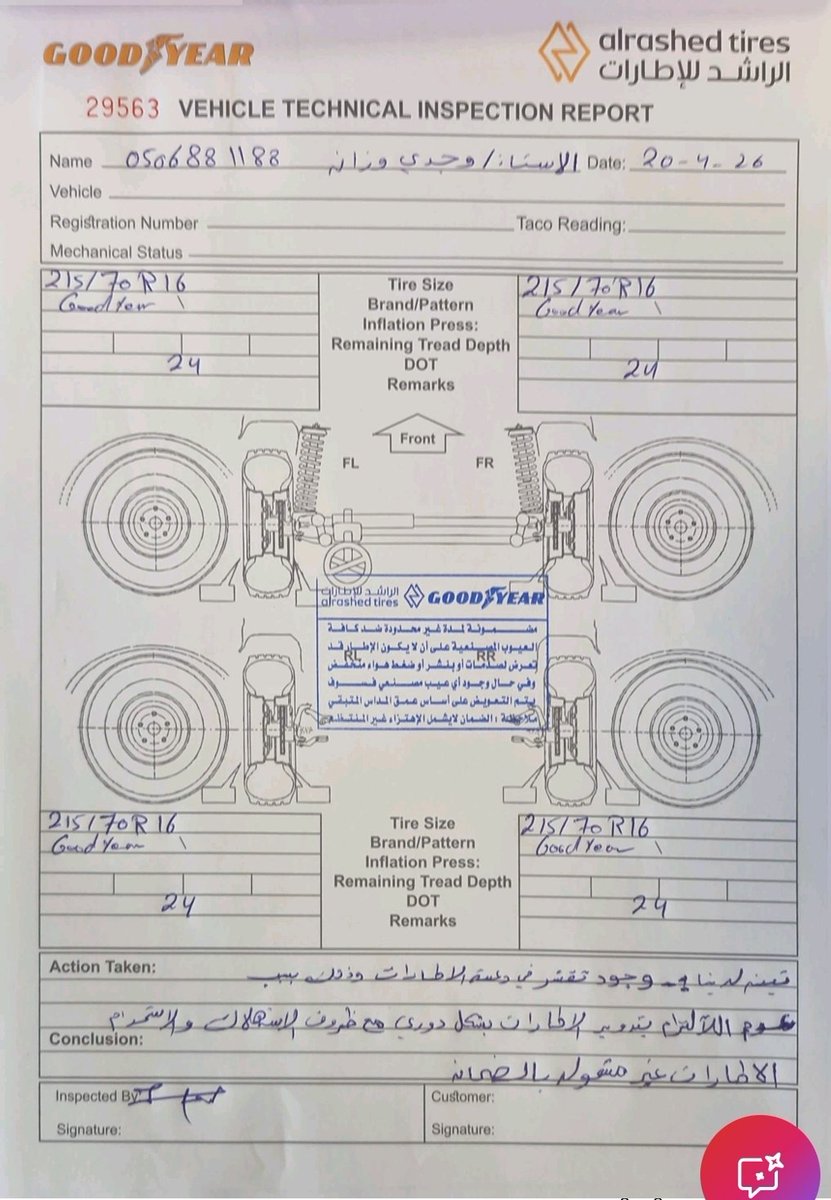 GOODYEAR
alrashed tires
الراشد للإطارات
29563 VEHICLE TECHNICAL INSPECTION REPORT
Name 0506881188 الاستاذ/وجدي وزانه Date: 20-4-26
Vehicle
Registration Number Taco Reading:
Mechanical Status
215/70R16 Tire Size 215/70R16
GoodYear Brand/Pattern GoodYear
Inflation Press:
Remaining Tread Depth
24 DOT 24
Remarks
Front
FL FR
الراشد للإطارات
alrashed tires GOODYEAR
مضمونة لمدة غير محدودة ضد كافة
العيوب المصنعية على أن لا يكون الإطار قد
RL RR
تعرض لصدمات أو بنشر أو ضغط هواء منخفض
وفي حال وجود أي عيب مصنعي فسوف
يتم التعويض على أساس عمق المداس المتبقي
ملاحظة : الضمان لايشمل الإهتزاء غير المنتظم
215/70R16 Tire Size 215/70R16
GoodYear Brand/Pattern GoodYear
Inflation Press:
Remaining Tread Depth
24 DOT 24
Remarks
Action Taken: تبين لدينا وجود تقشر في دعسة الاطارات وذلك بسبب
عدم الالتزام بتدوير الاطارات بشكل دوري مع ظروف الاستهلاك والاستخدام
Conclusion:
الاطارات غير مشموله بالضمان
Inspected By Customer:
Signature: Signature: